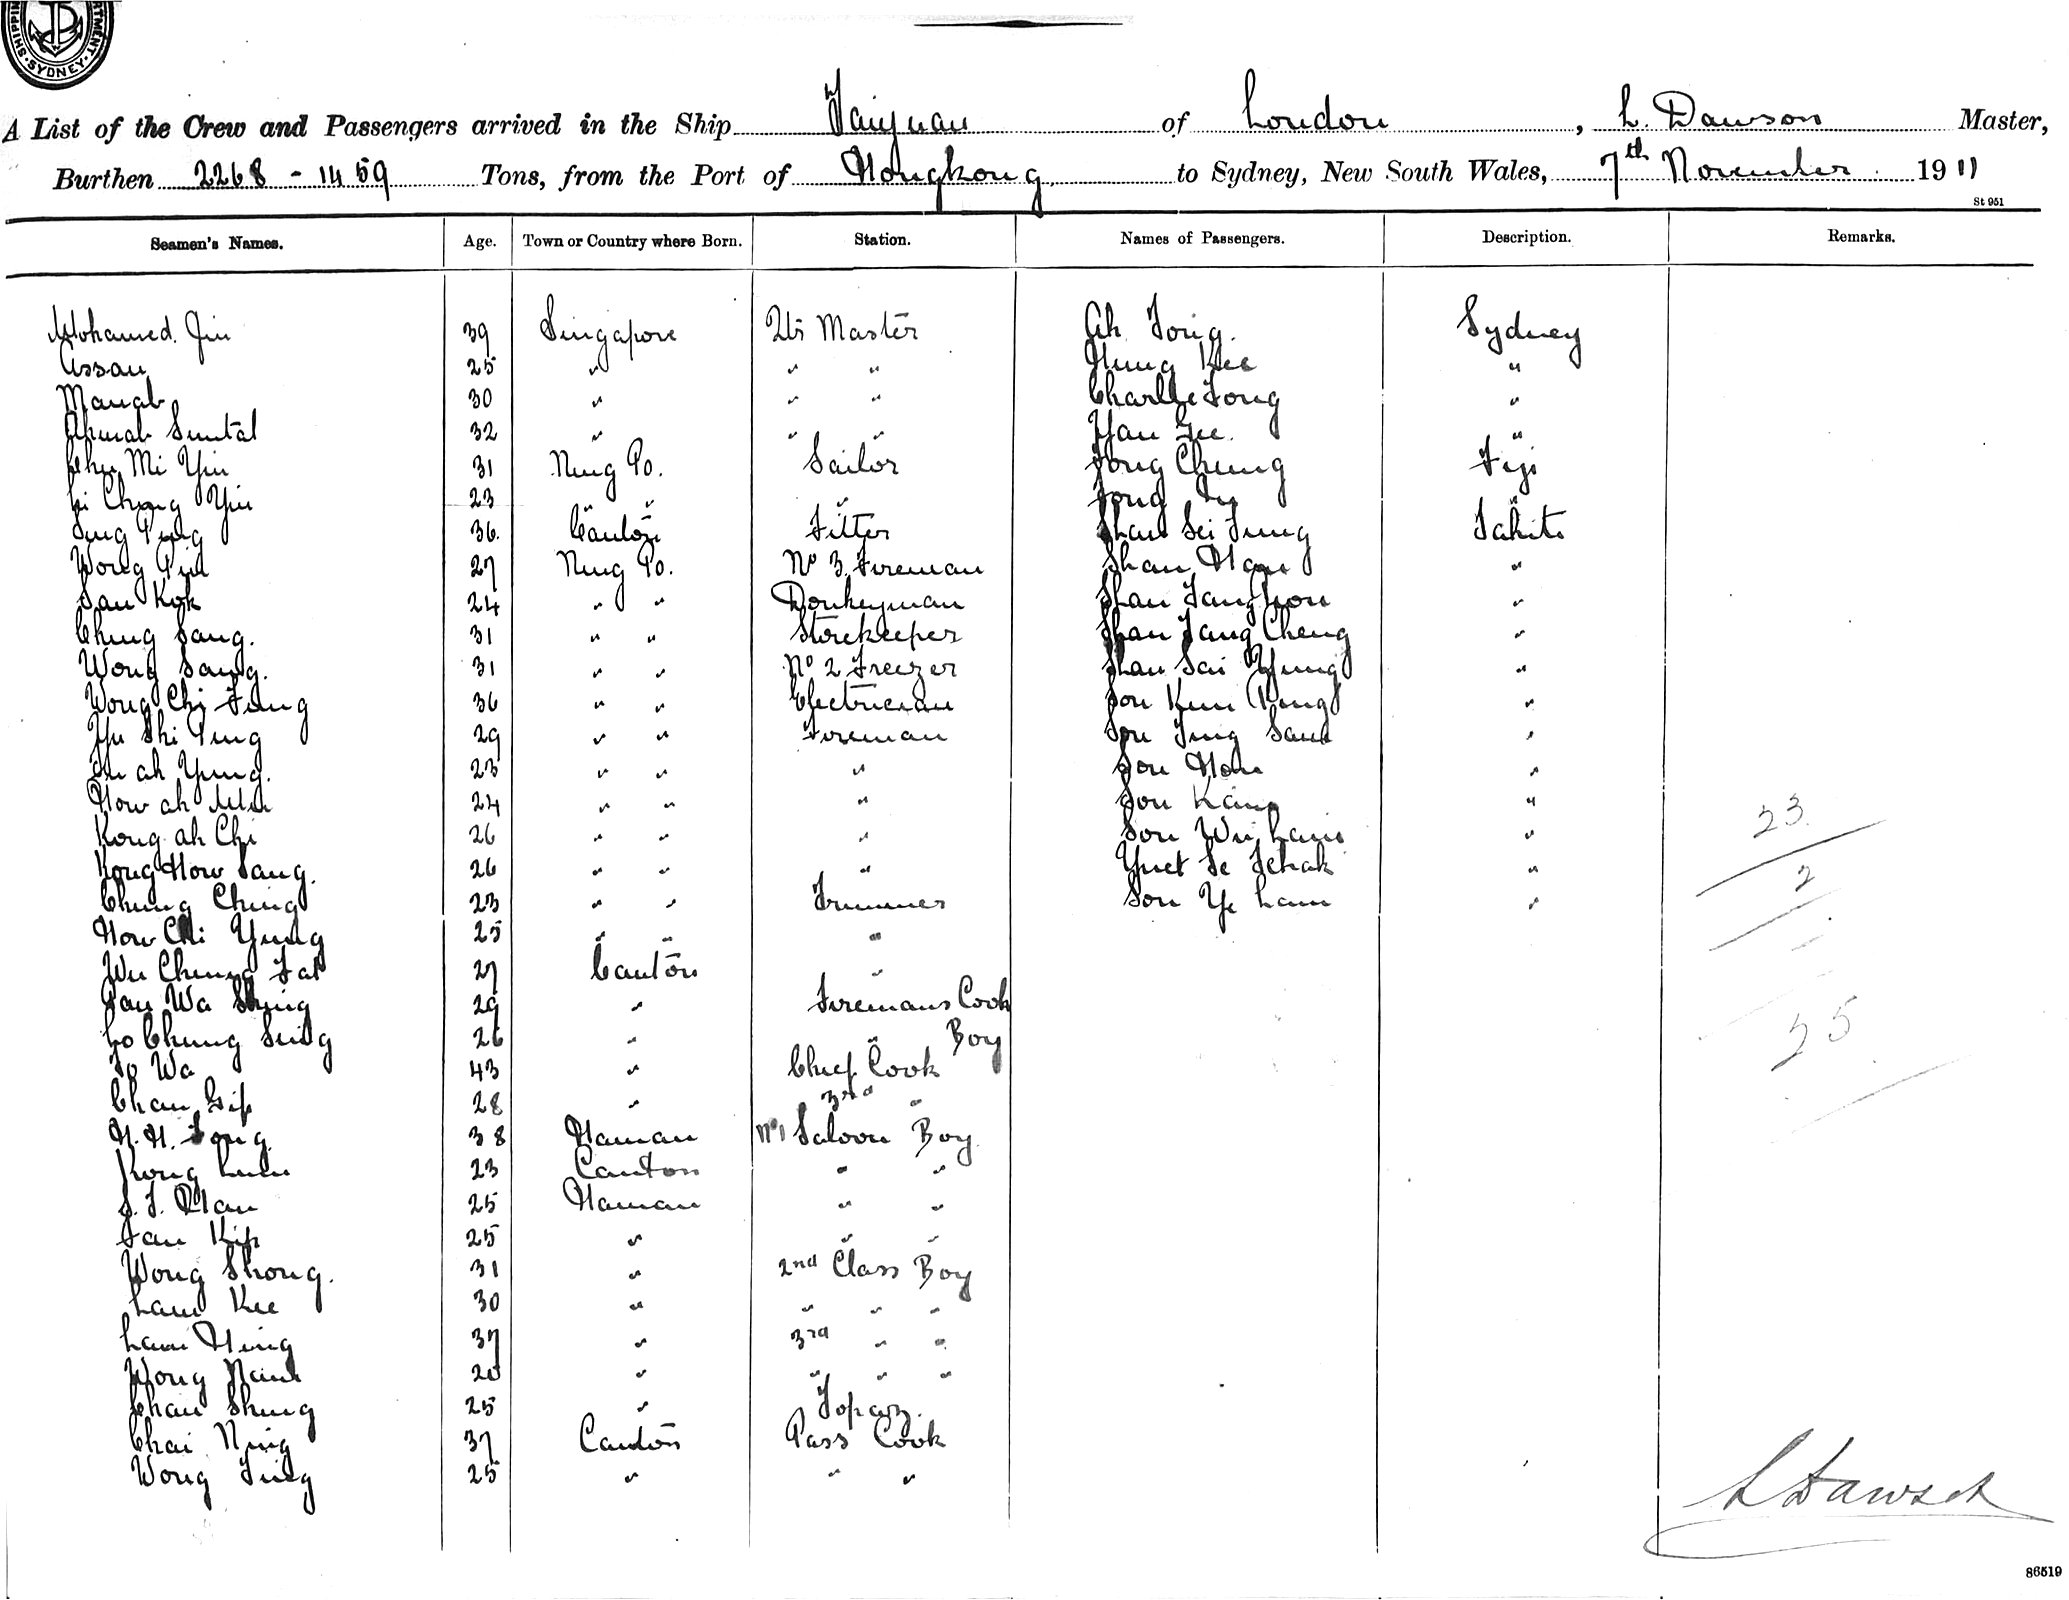 SHIPPING DEPARTMENT SYDNEY
A List of the Crew and Passengers arrived in the Ship Taiyuan of London, L. Dawson Master,
Burthen 2268 - 1459 Tons, from the Port of Hongkong to Sydney, New South Wales, 7th November 1911
St 951
Seamen's Names. Age. Town or Country where Born. Station. Names of Passengers. Description. Remarks.
Mohamed Jin 39 Singapore Qtr Master Ah Fong. Sydney
Assan 25 " " " Hung Kee "
Manab 30 " " " Charlie Fong "
Ahmab Suntal 32 " " " Yan Gee. "
Mi Yin 31 Ning Po. Sailor Fong Chung Fiji
Li Chong Yin 23 " " " Fong "
36. Canton Fitter Shan Sei Fung Tahiti
Wong 27 Ning Po. No 3 Fireman Shan "
San Kok 24 " " Donkeyman Shan "
Ching Sang. 31 " " Storekeeper Shan Tang Cheng "
Wong Sang. 31 " " No 2 Freezer Shan Sai Yung "
Wong Chi Fung 36 " " Electrician Sou Kun "
Yu Shi Ping 29 " " Fireman Sou Ting "
ah Yung. 23 " " " Sou "
How ah 24 " " " Sou "
Kong ah Chi 26 " " " Sou "
Kong How Sang. 26 " " " Yuet Se "
Chung Ching 23 " " Trimmer Sou Ye Lam "
How Chi Yung 25 " " "
Wu Chung Fat 27 Canton "
Wa Shing 29 " Firemans Cook
Lo Chung Sing 26 " " Boy
Wa 43 " Chief Cook
Chan Gip 28 " 3rd "
H. H. Fong 38 Hainan No1 Saloon Boy
Kong 23 Canton " "
S. T. 25 Hainan " "
Kip 25 " " "
Wong Shong. 31 " 2nd Class Boy
Lam Kee 30 " " " "
Lam Hing 37 " 3rd " "
Wong " " " "
Chan Shing 25 " Topaz.
Chai Ning 37 Canton Pass Cook
Wong Ting 25 " " "
23
2
25
L Dawson
86519